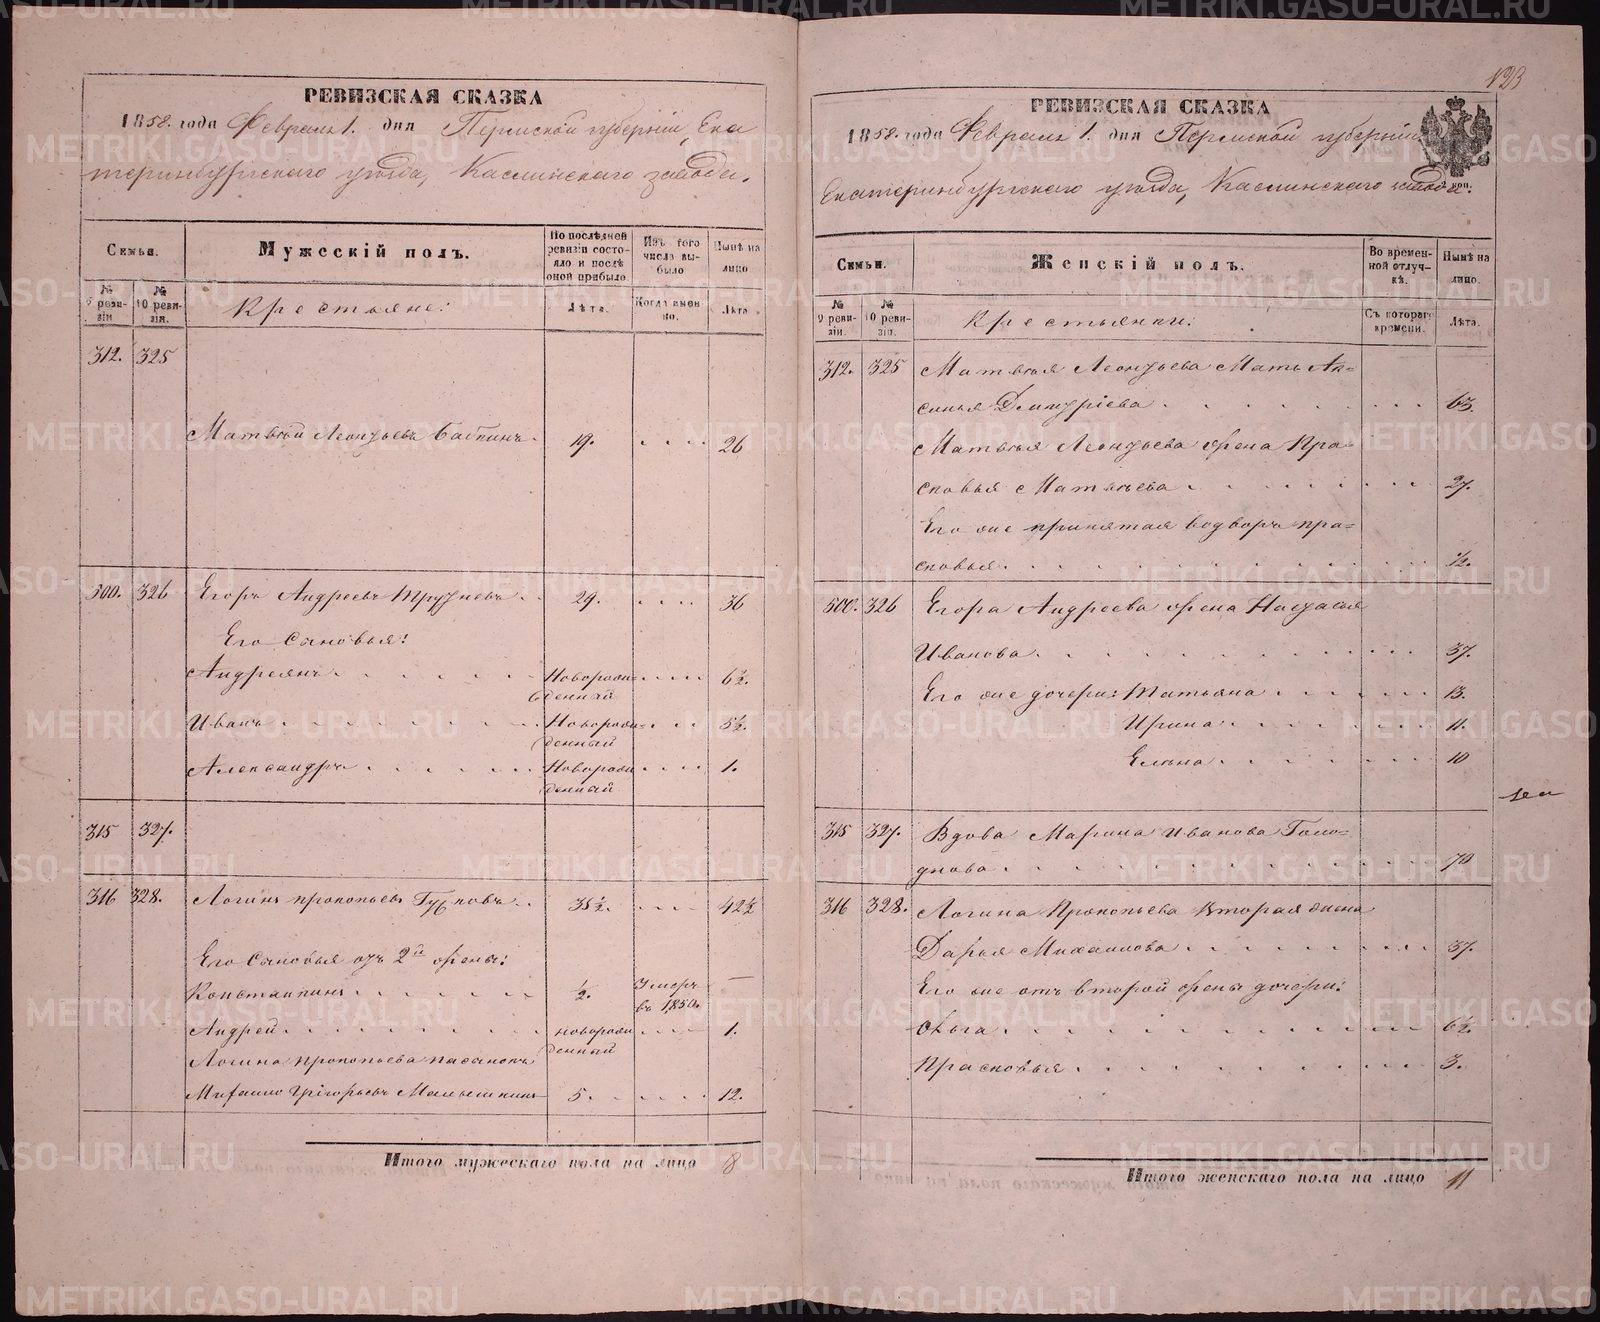 РЕВИЗСКАЯ СКАЗКА
1858. года Февраля 1. дня Пермской губернiи, Ека
теринбургскаго уѣзда, Каслинскаго завода.
Семьи.
Мужескiй полъ.
По послѣдней ревизiи состояло и послѣ оной прибыло.
Изъ того числа выбыло
Нынѣ на лицо
№ 9 ревизiи
№ 10 ревизiя.
Крестьяне:
Лѣта.
Когда именно.
Лѣта
312. 325
Матвѣй Леонтьевъ Бабкинъ. 19. 26
300. 326 Егоръ Андреевъ 29. 36
Его Сыновья:
Андреянъ Новорожденный 6½.
Иванъ Новорожденный 5½.
Александръ Новорожденный 1.
315 327.
316 328. Логинъ Прокопьевъ 35½. 42½
Его Сыновья отъ 2й жены:
Константинъ ½. Умеръ въ 1850. —
Андрей новорожденный 1.
Логина Прокопьева пасынокъ
Михайло Григорьевъ Малышкинъ 5. 12.
Итого мужескаго пола на лицо 8
123
РЕВИЗСКАЯ СКАЗКА
1858. года Февраля 1. дня Пермской губернiи
Екатеринбургскаго уѣзда, Каслинскаго завода.
Семьи.
Женскiй полъ.
Во временной отлучкѣ.
Нынѣ на лицо.
№ 9 ревизiи.
№ 10 ревизiи.
Крестьянки:
Съ котораго времени.
Лѣта.
312. 325 Матвѣя Леонтьева Мать Ак=
синья Дмитрiева 63.
Матвѣя Леонтьева жена Пра=
сковья Матвѣева 27.
Его же принятая во дворъ Пра=
сковья ½.
300. 326 Егора Андреева жена Настасья
Иванова 37.
Его же дочери: Татьяна 13.
Ирина 11.
Елена 10
315 327. Вдова Марина Иванова Голо=
днова 70
316 328. Логина Прокопьева Вторая жена
Дарья Михайлова 37.
Его же отъ второй жены дочери:
6½.
Прасковья 3.
Итого женскаго пола на лицо 11
METRIKI.GASO-URAL.RU